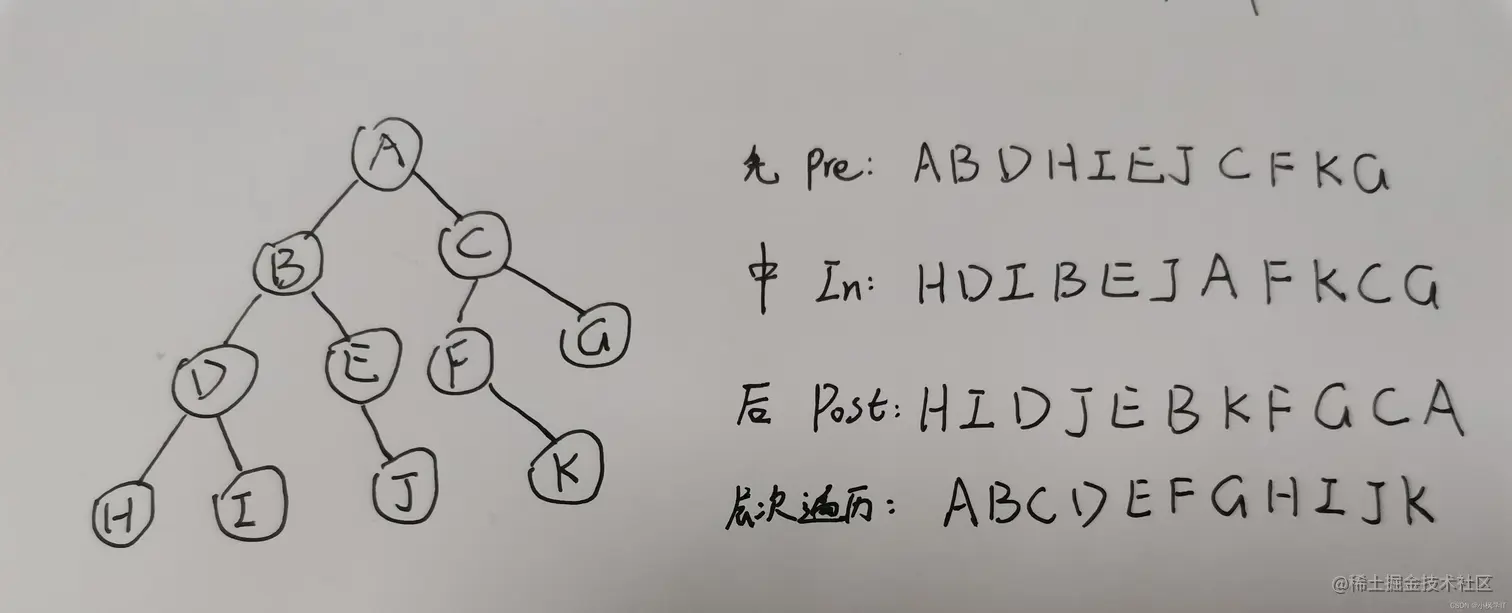 A
B
C
D
E
F
G
H
I
J
K
先 Pre: A B D H I E J C F K G
中 In: H D I B E J A F K C G
后 Post: H I D J E B K F G C A
层次遍历: A B C D E F G H I J K
@稀土掘金技术社区